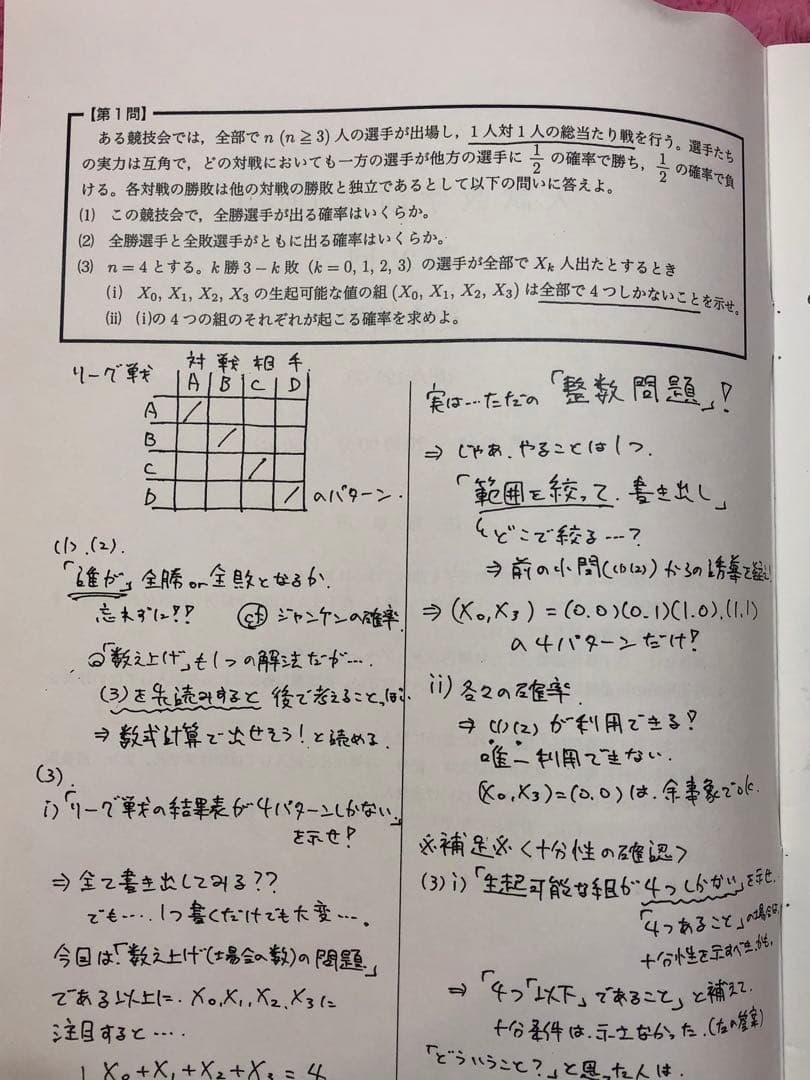 【第1問】
ある競技会では,全部で n (n ≧ 3) 人の選手が出場し,1人対1人の総当たり戦を行う。選手たち
の実力は互角で,どの対戦においても一方の選手が他方の選手に 1/2 の確率で勝ち,1/2 の確率で負
ける。各対戦の勝敗は他の対戦の勝敗と独立であるとして以下の問いに答えよ。
(1) この競技会で,全勝選手が出る確率はいくらか。
(2) 全勝選手と全敗選手がともに出る確率はいくらか。
(3) n=4 とする。k 勝 3-k 敗 (k=0, 1, 2, 3) の選手が全部で Xk 人出たとするとき
(i) X0, X1, X2, X3 の生起可能な値の組 (X0, X1, X2, X3) は全部で4つしかないことを示せ。
(ii) (i)の4つの組のそれぞれが起こる確率を求めよ。
リーグ戦
対戦相手
A B C D
A
B
C
D
のパターン.
(1).(2).
「誰が」全勝or全敗となるか.
忘れずに!?
cf ジャンケンの確率.
「数え上げ」も1つの解法だが….
(3)を先読みすると 後で考えること
⇒ 数式計算で出せそう!と読める.
(3).
i)「リーグ戦の結果表が4パターンしかない」
を示せ!
⇒ 全て書き出してみる??
でも….1つ書くだけでも大変….
今回は「数え上げ(場合の数)の問題」
である以上に.X0,X1,X2,X3に
注目すると….
X0+X1+X2+X3=4
実は…ただの「整数問題」!
⇒ じゃあ.やることは1つ.
「範囲を絞って.書き出し」
どこで絞る…?
⇒ 前の小問((1)(2))からの誘導で
⇒ (X0,X3)=(0.0)(0.1)(1.0).(1,1)
の4パターンだけ!
ii) 各々の確率.
⇒ (1)(2)が利用できる!
唯一利用できない.
(X0,X3)=(0.0)は.余事象でok.
※補足※<十分性の確認>
(3)i)「生起可能な組が4つしかない」を示せ.
「4つあること」の場合は
十分性を示すべきかも.
⇒「4つ「以下」であること」と補えて.
十分条件は.示さなかった.(左の答案)
「どういうこと?」と思った人は.